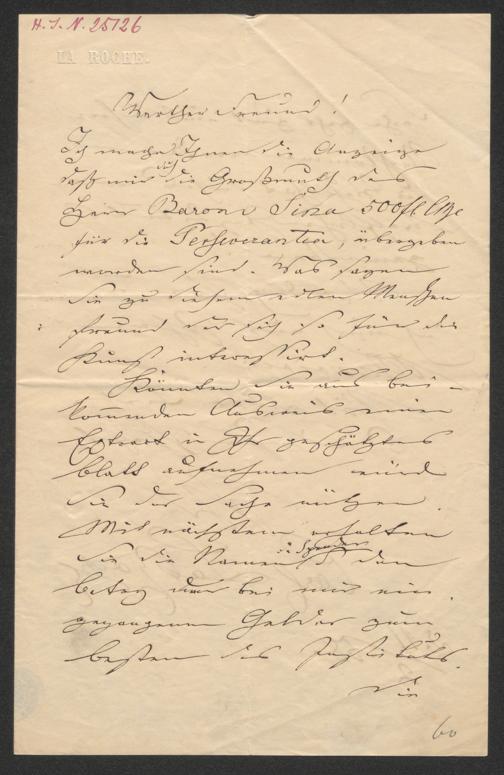 H. I. N. 25126
LA ROCHE.
Werther Freund!
Ich mache Ihnen die Anzeige
daß mir durch die Großmuth des
Herrn Baron Sina 500 fl CMze
für die Perseverantia, übergeben
worden sind. Was sagen
Sie zu diesem edlen Menschen
freund der sich so für die
Kunst interessirt.
Könnten Sie aus bei-
kommenden Ausweis einen
Extract in Ihr geschätztes
Blatt aufnehmen würde
Sie der Sache nützen.
Mit nächstem erhalten
Sie die Namen u: Spender
betrag der bei mir ein
gegangenen Gelder zum
besten des Instituts.
Die
60